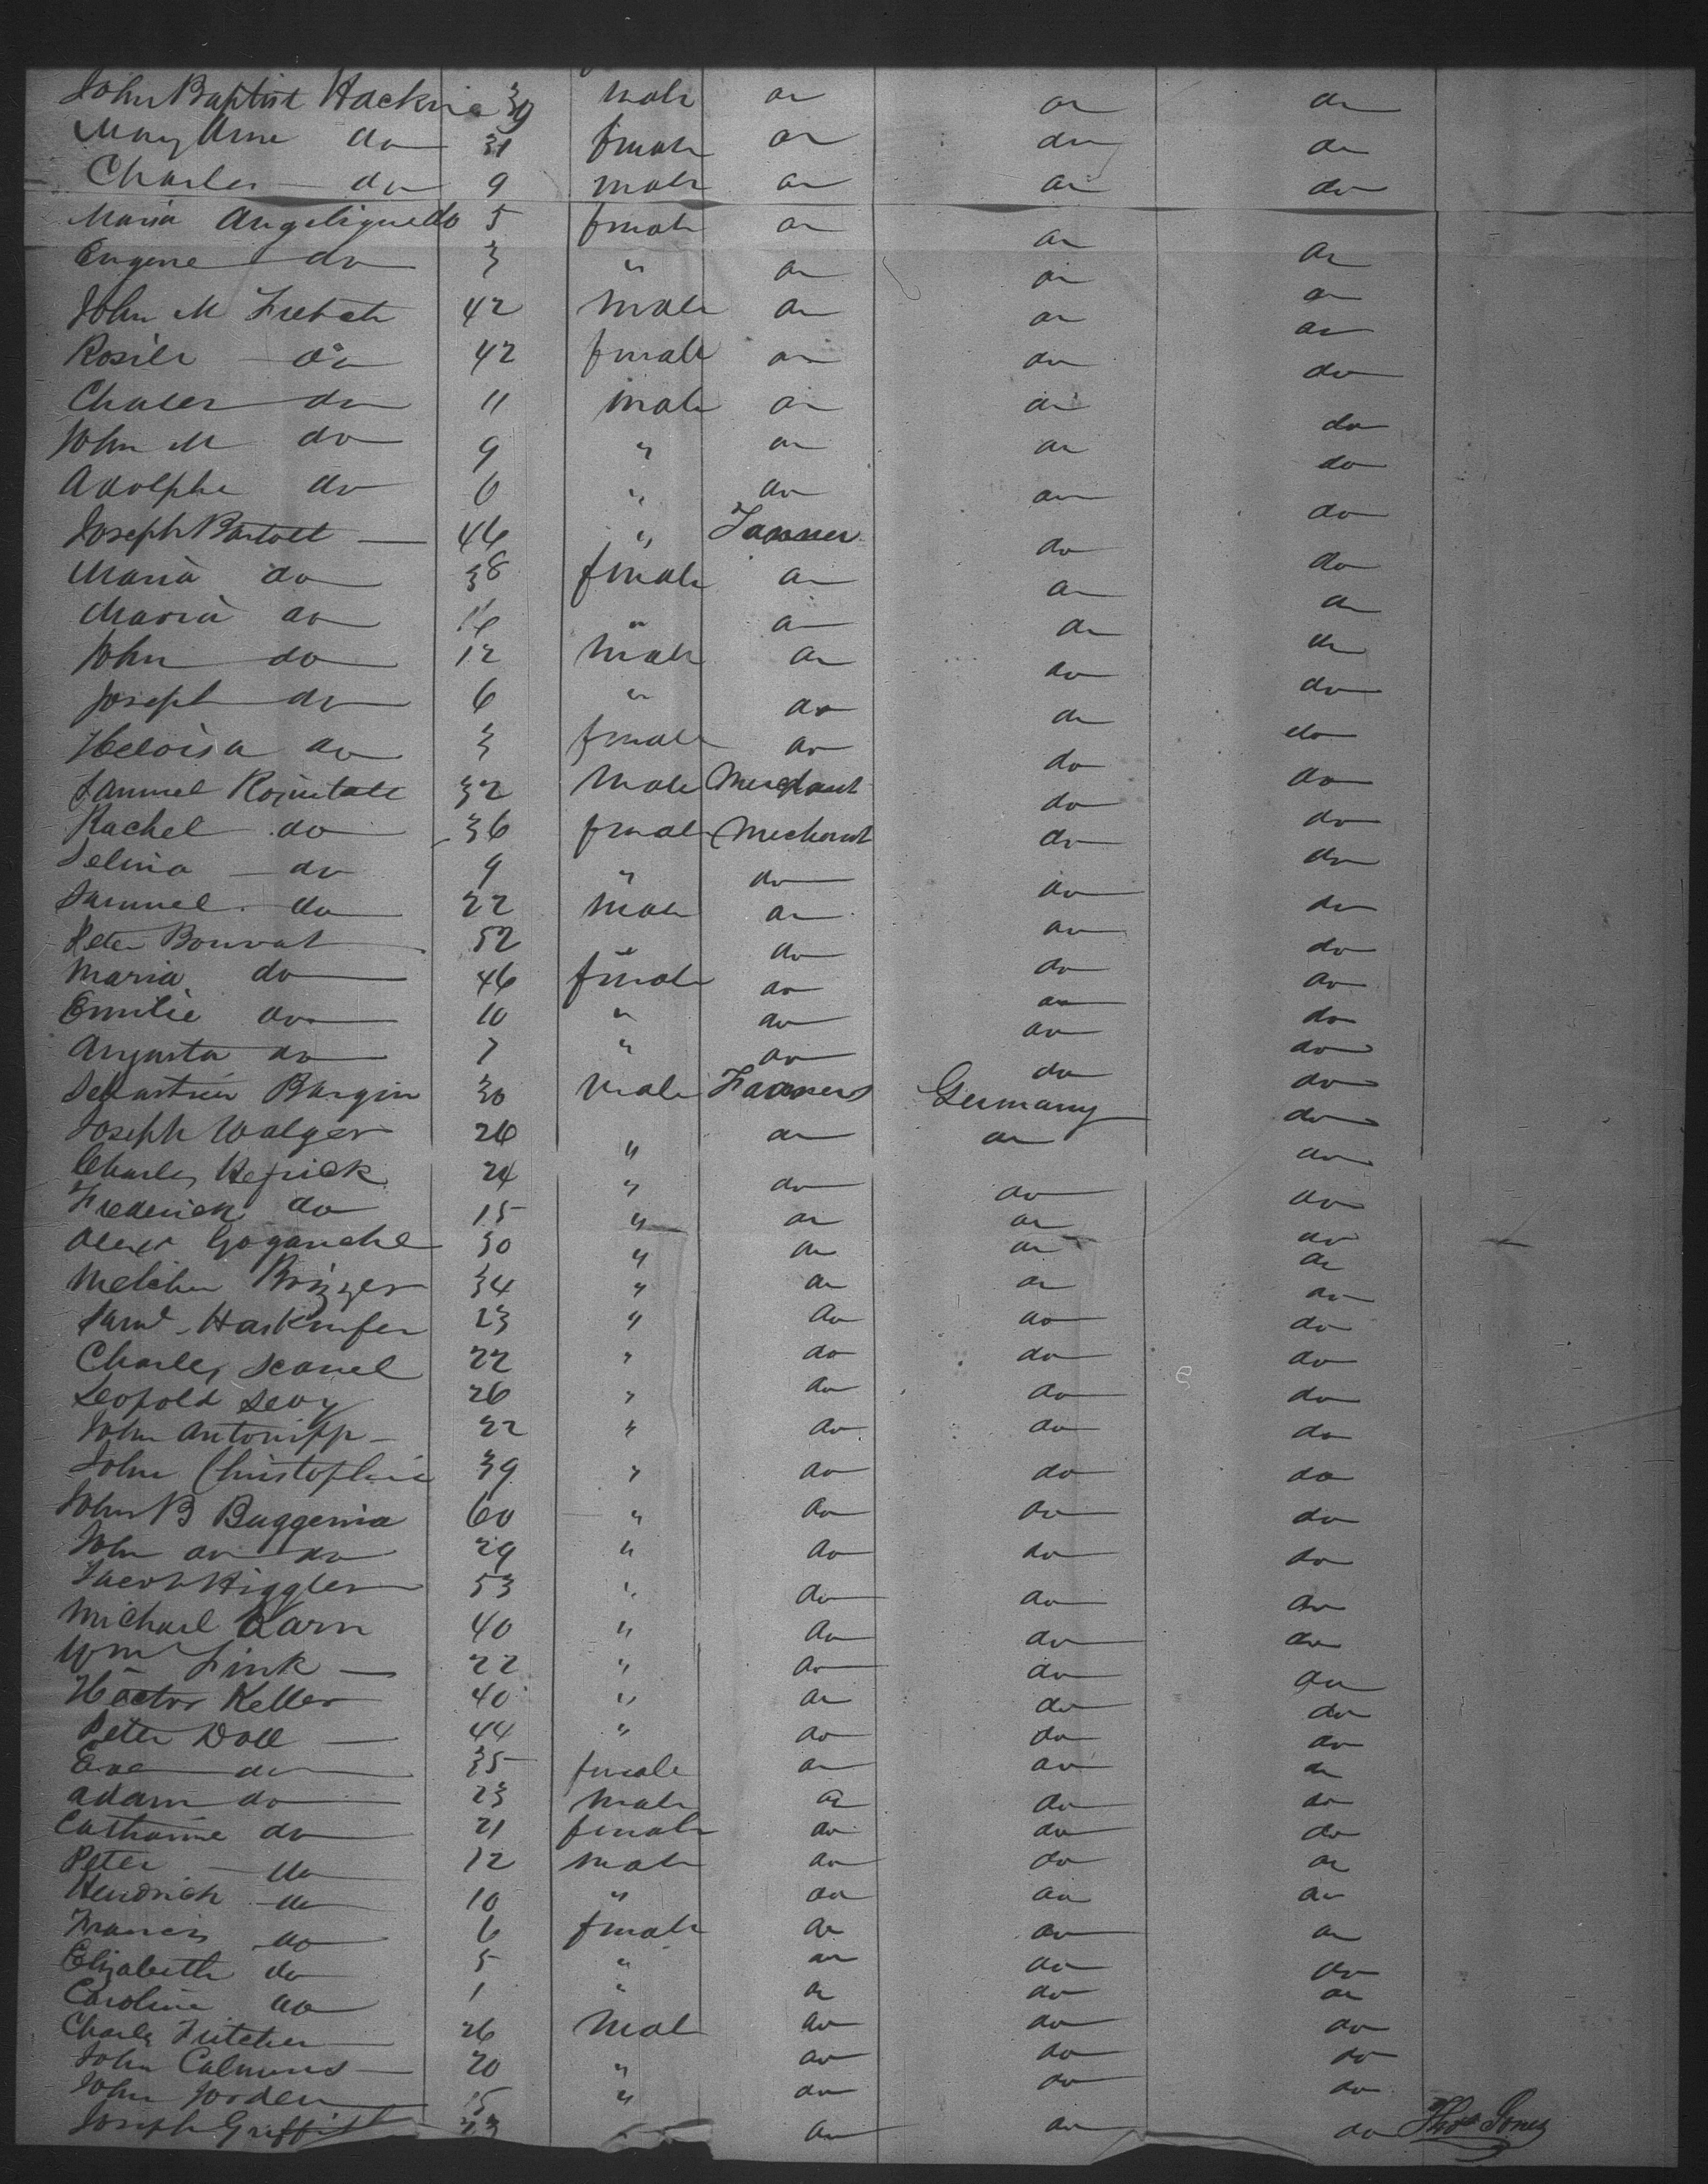 John Baptist Hacknie 39 male do do do
Mary Anne do 31 female do do do
Charles do 9 male do do do
Maria Angelique do 5 female do do do
Eugene do 3 " do do do
John M 42 male do do do
Rosili do 42 female do do do
Chales do 11 male do do do
John M do 9 " do do do
Adolphe do 6 " do do do
Joseph Bartoll 46 " Farmer do do
Maria do 38 female do do do
Maria do 14 " do do do
John do 12 male do do do
Joseph do 6 " do do do
Heloisa do 3 female do do do
Samuel 32 male Merchant do do
Rachel do 36 female Mechant do do
Selina do 9 " do do do
Samuel do 22 male do do do
Peter Bonvat 52 " do do do
Maria do 46 female do do do
Emilie do 10 " do do do
Augusta do 7 " do do do
Sebastien Burgin 30 male Farmers Germany do
Joseph Walger 26 " do do do
Charles 24 " do do do
Frederick do 15 " do do do
Alexr 30 " do do do
Melchu Brizzer 34 " do do do
Saml 23 " do do do
Charles 22 " do do do
Leopold Levy 26 " do do do
John Antonipp 22 " do do do
John Christophine 39 " do do do
John B Buggenia 60 " do do do
John do do 29 " do do do
Jacob Higgler 53 " do do do
Michael Karn 40 " do do do
Wm Fink 22 " do do do
Hector Keller 40 " do do do
Peter Doll 44 " do do do
Eva do 35 female do do do
Adam do 23 male do do do
Catharine do 21 female do do do
Peter do 12 male do do do
Hendrich do 10 " do do do
Francis do 6 female do do do
Elizabeth do 5 " do do do
Caroline do 1 " do do do
Charls Fritcher 26 Mal do do do
John Calmuns 20 " do do do
John Jorden 15 " do do do
Joseph Griffith 23 do do do Thos Jones